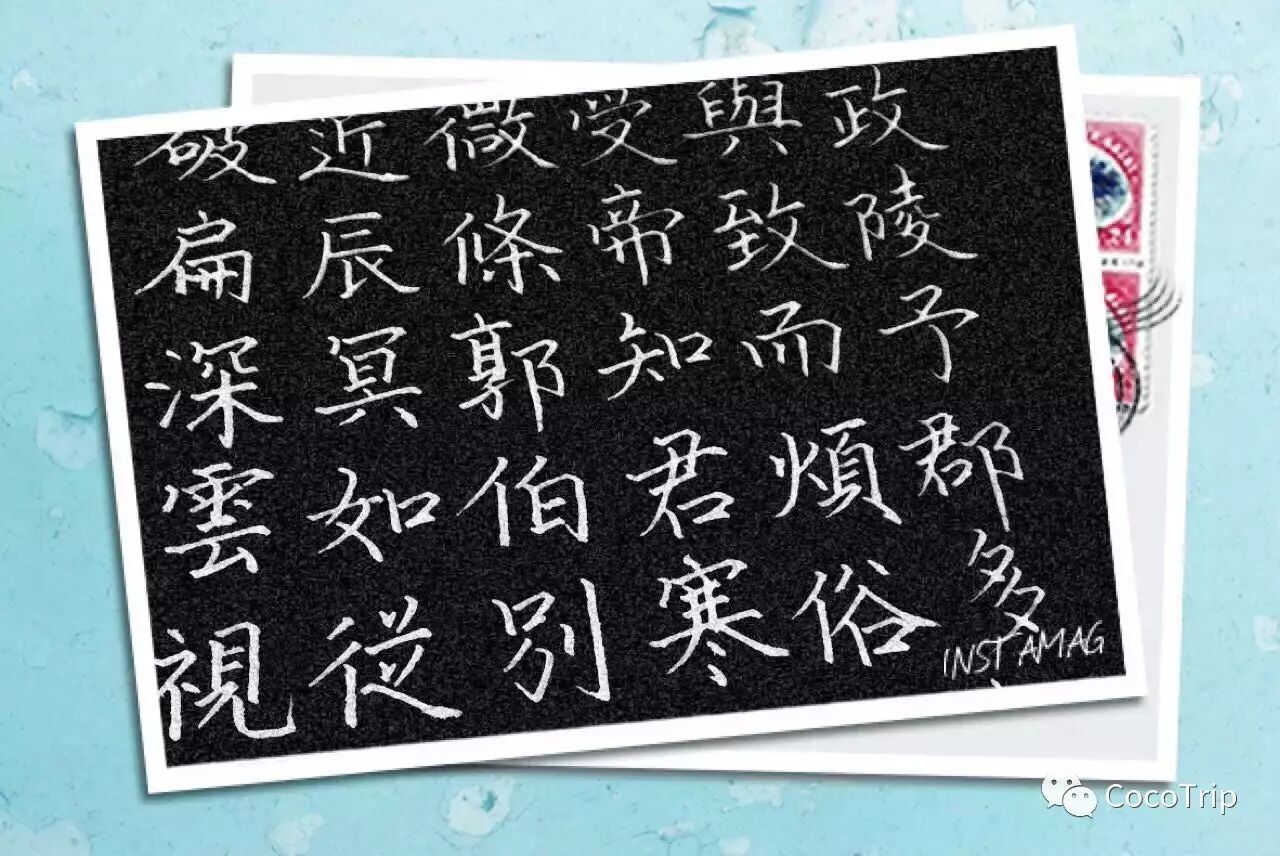 破近微受與政
扁辰條帝致陵
深冥郭知而予
雲如伯君煩郡
視從別寒俗多
INSTAMAG
24
CocoTrip